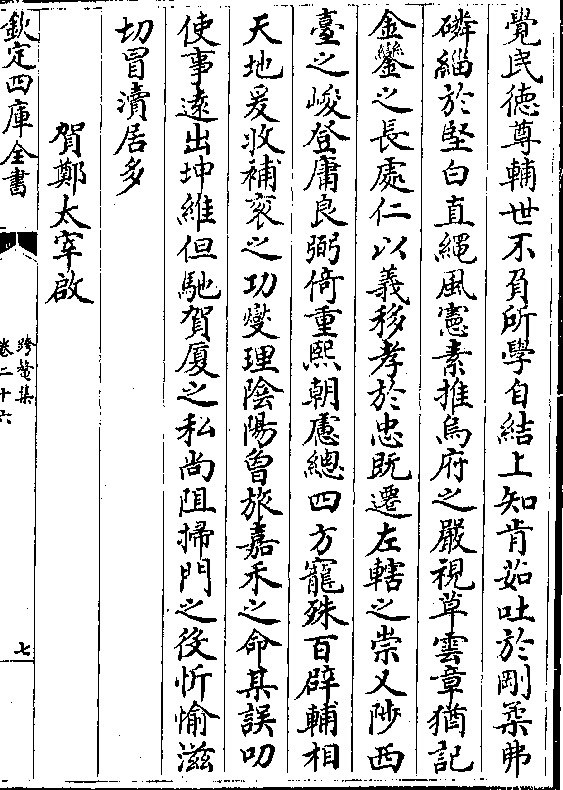 覺民徳尊輔世不負所學自結上知肯茹吐於剛柔弗
磷緇於堅白直繩風憲素推烏府之嚴視草雲章猶記
金鑾之長處仁以義移孝於忠既遷左轄之崇又陟西
臺之峻登庸良弼倚重熙朝慮總四方寵殊百辟輔相
天地爰收補衮之功燮理陰陽曾旅嘉禾之命某誤叨
使事逺出坤維但馳賀厦之私尚阻掃門之役忻愉滋
切冒瀆居多
賀鄭太宰啟
欽定四庫全書
跨鼇集
卷二十六
七